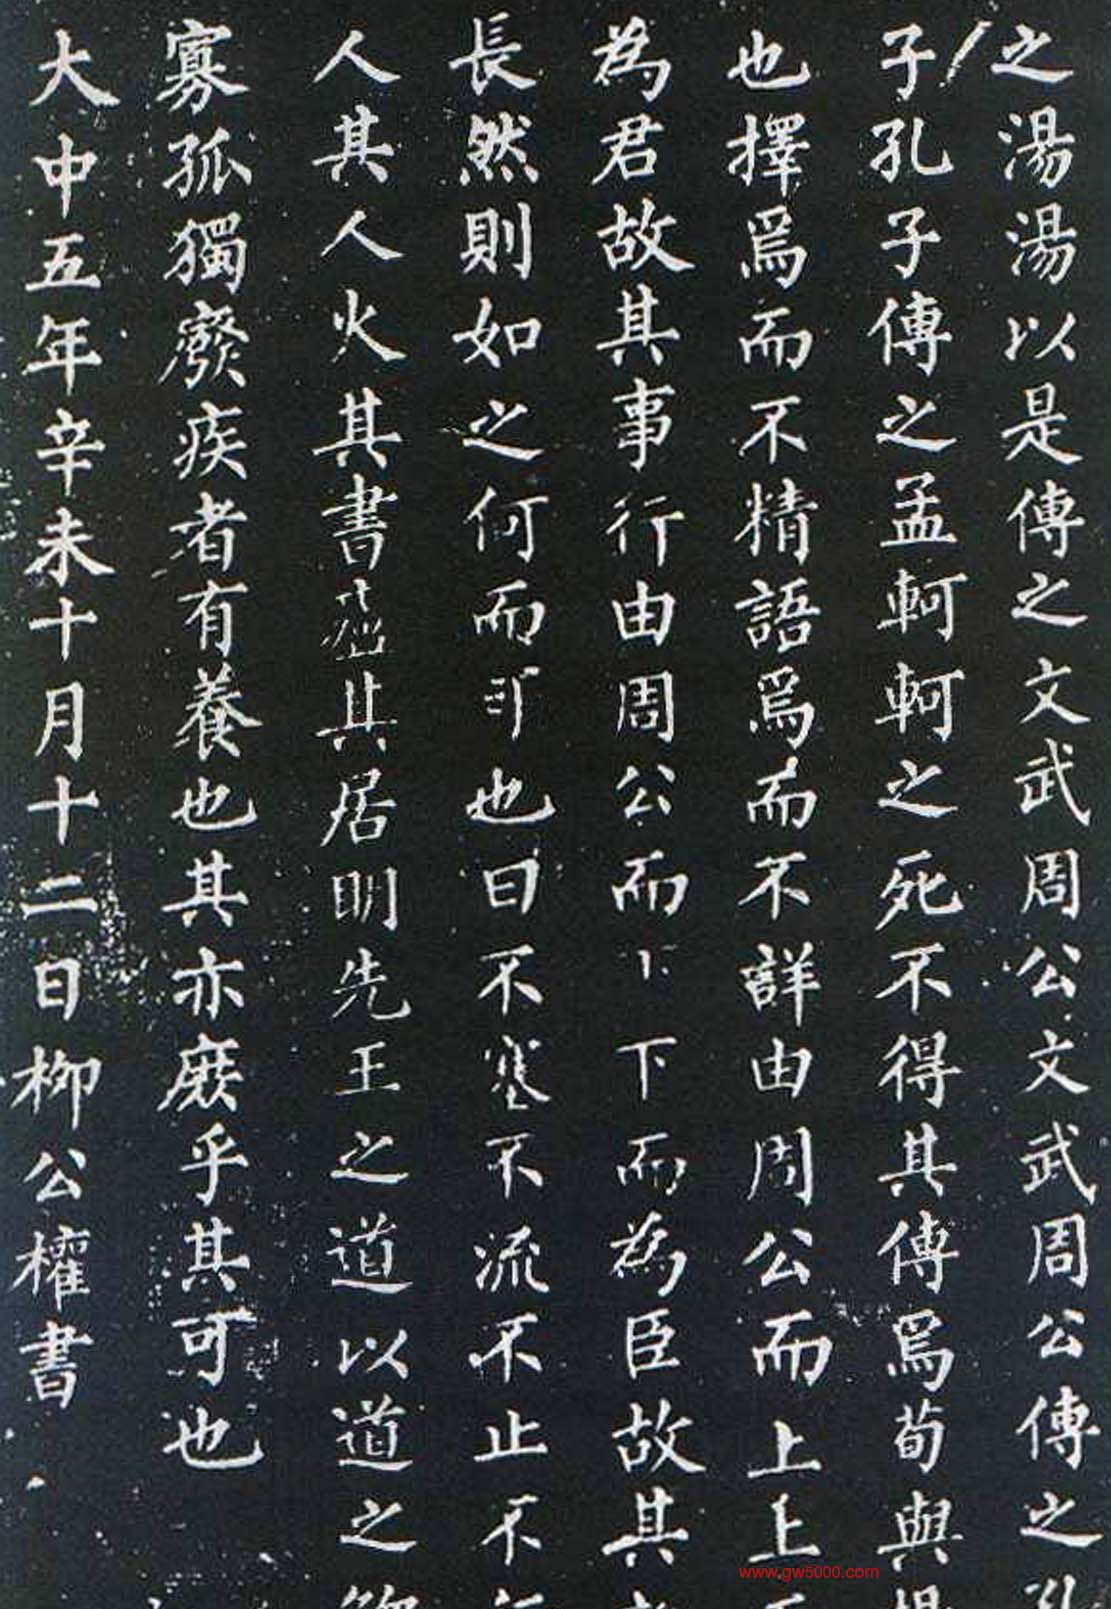 之湯湯以是傳之文武周公文武周公傳之孔
子孔子傳之孟軻軻之死不得其傳焉荀與
也擇焉而不精語焉而不詳由周公而上上
為君故其事行由周公而下下而為臣故其
長然則如之何而也曰不塞不流不止不
人其人火其書其居明先王之道以道之
寡孤獨廢疾者有養也其亦庶乎其可也
大中五年辛未十月十二日柳公權書
www.gw5000.com